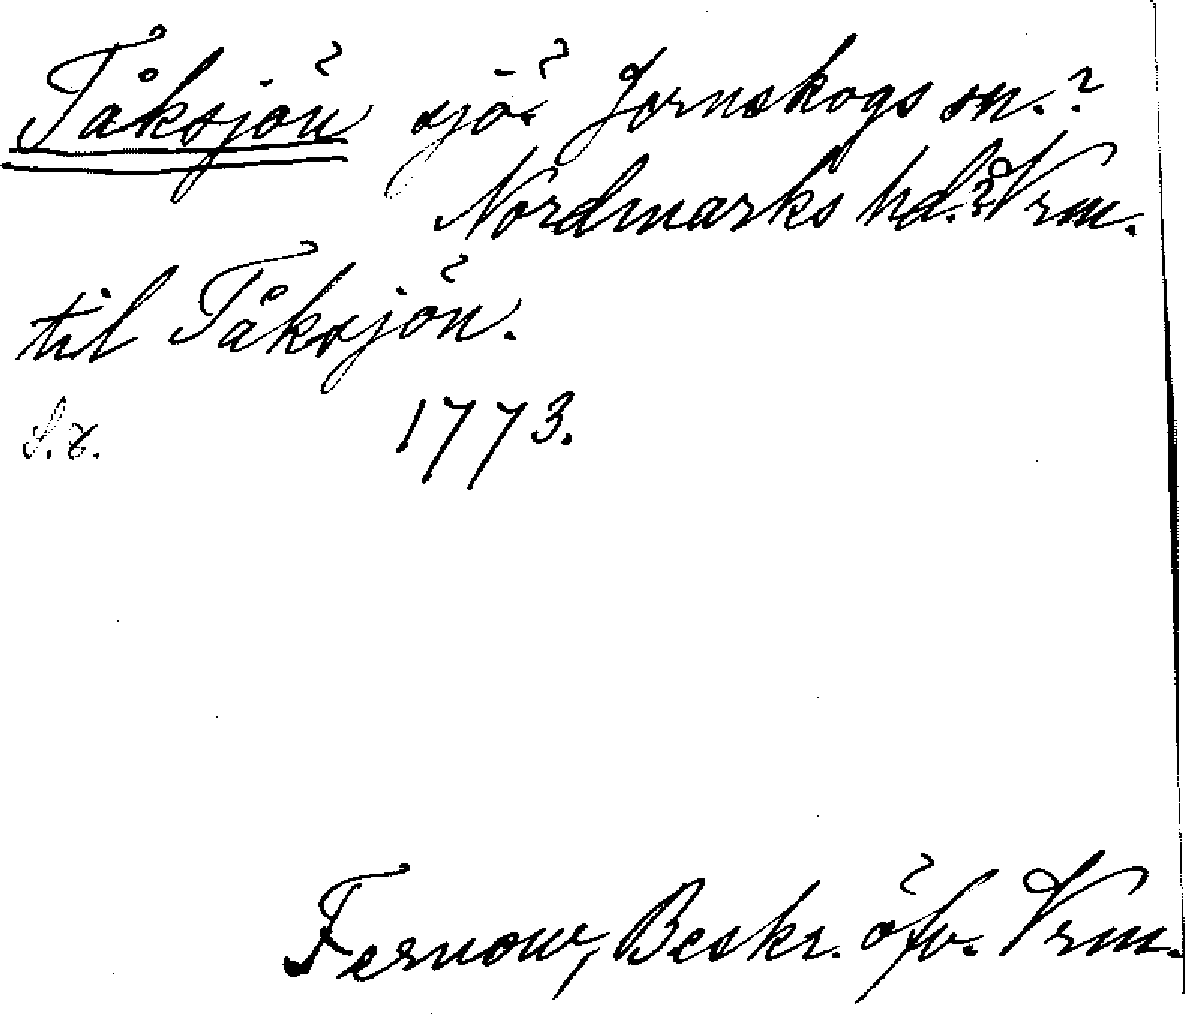 Tåksjön sjö. Jernskogs sn.?
Nordmarks hd.? Vrm.
til Tåksjön.
1773.
Fernow, Beskr. öfv. Vrm.